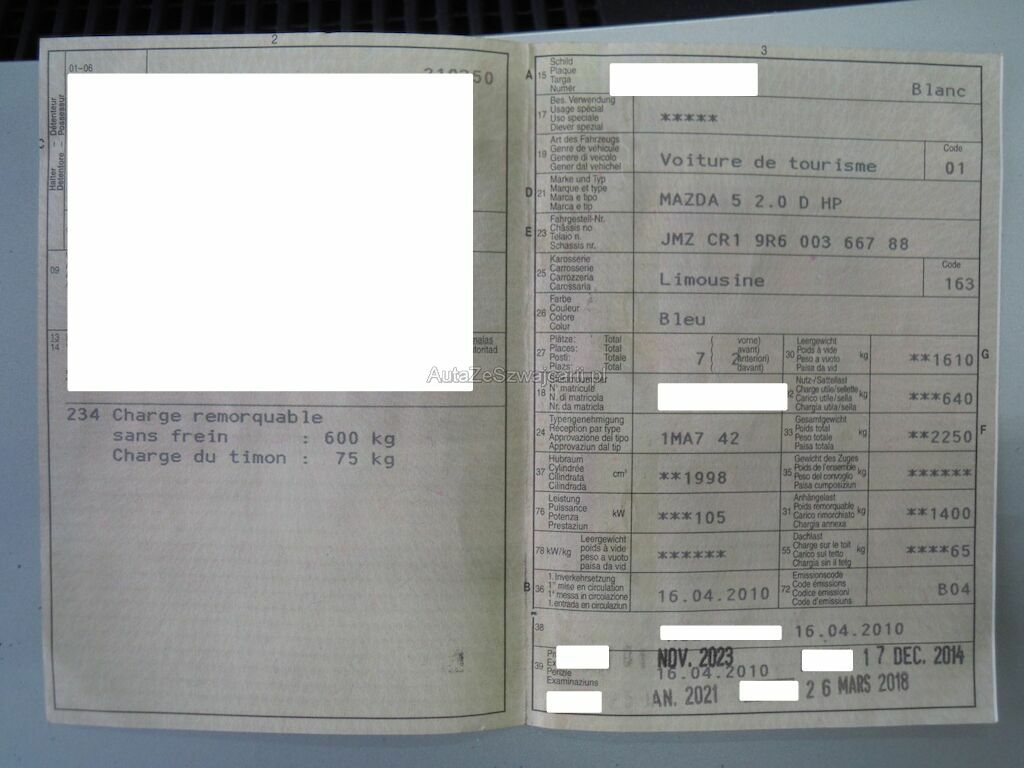 2
01-06
210250
Halter - Détenteur
Detentore - Possessur
C
09
13
14
234 Charge remorquable
sans frein : 600 kg
Charge du timon : 75 kg
AutaZeSzwajcarii.pl
3
A 15 Schild
Plaque
Targa
Numer
Blanc
17 Bes. Verwendung
Usage spécial
Uso speciale
Diever spezial
*****
19 Art des Fahrzeugs
Genre de véhicule
Genere di veicolo
Gener dal vehichel
Voiture de tourisme
Code
01
D 21 Marke und Typ
Marque et type
Marca e tipo
Marca e tip
MAZDA 5 2.0 D HP
E 23 Fahrgestell-Nr.
Châssis no
Telaio n.
Schassis nr.
JMZ CR1 9R6 003 667 88
25 Karosserie
Carrosserie
Carrozzeria
Carossaria
Limousine
Code
163
26 Farbe
Couleur
Colore
Colur
Bleu
27 Plätze: Total
Places: Total
Posti: Totale
Plazs: Total
7
vorne)
avant)
anteriori)
davant)
2
30 Leergewicht
Poids à vide
Peso a vuoto
Paisa da vid
kg
**1610
G
18
N° matricule
N. di matricola
Nr. da matricla
Nutz-/Sattellast
Charge utile/sellette
Carico utile/sella
Chargia utila/sella
kg
***640
24 Typengenehmigung
Réception par type
Approvazione del tipo
Approvaziun dal tip
1MA7 42
33 Gesamtgewicht
Poids total
Peso totale
Paisa totala
kg
**2250
F
37 Hubraum
Cylindrée
Cilindrata
Cilindrada
cm³
**1998
35 Gewicht des Zuges
Poids de l'ensemble
Peso del convoglio
Paisa cumposiziun
kg
******
76 Leistung
Puissance
Potenza
Prestaziun
kW
***105
31 Anhängelast
Poids remorquable
Carico rimorchiato
Chargia annexa
kg
**1400
78 kW/kg
Leergewicht
poids à vide
peso a vuoto
paisa da vid
******
55 Dachlast
Charge sur le toit
Carico sul tetto
Chargia sin il tetg
kg
****65
B 36 1. Inverkehrsetzung
1re mise en circulation
1a messa in circolazione
1. entrada en circulaziun
16.04.2010
72 Emissionscode
Code émissions
Codice emissioni
Code d'emissiuns
B04
38
16.04.2010
39
Perizie
Examinaziuns
NOV. 2023
17 DEC. 2014
16.04.2010
AN. 2021
26 MARS 2018